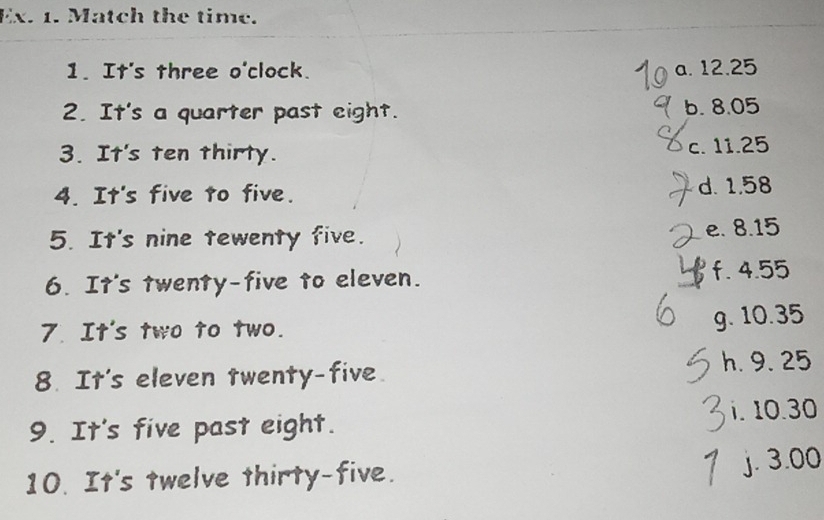 Ex. 1. Match the time.
1. It's three o'clock. 10 a. 12.25
2. It's a quarter past eight. 9 b. 8.05
3. It's ten thirty. 8 c. 11.25
4. It's five to five. 7 d. 1.58
5. It's nine tewenty five. 2 e. 8.15
6. It's twenty-five to eleven. 4 f. 4.55
7. It's two to two. 6 g. 10.35
8. It's eleven twenty-five. 5 h. 9. 25
9. It's five past eight. 3 i. 10.30
10. It's twelve thirty-five. 1 j. 3.00